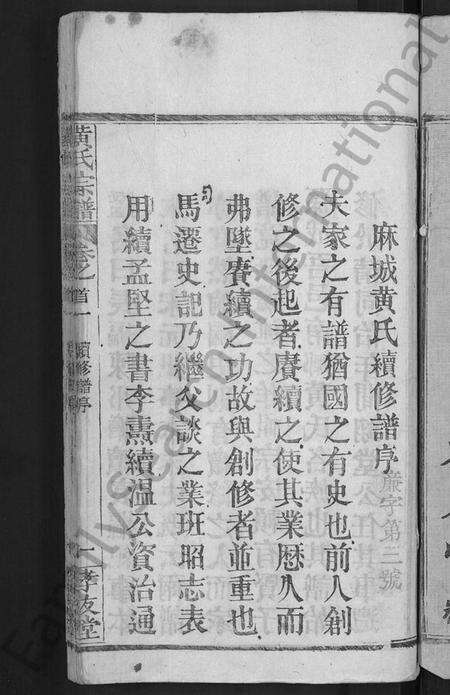 麻城黃氏續修譜序
嚴字第三號
夫家之有譜猶國之有史也前人創
修之後起者賡續之使其業歷久而
弗墜賡續之功故與創修者並重也
馬遷史記乃繼父談之業班昭志表
用續孟堅之書李燾續溫公資治通
黃氏宗譜
卷之首一
續修譜序
孝友堂
FamilySearch International